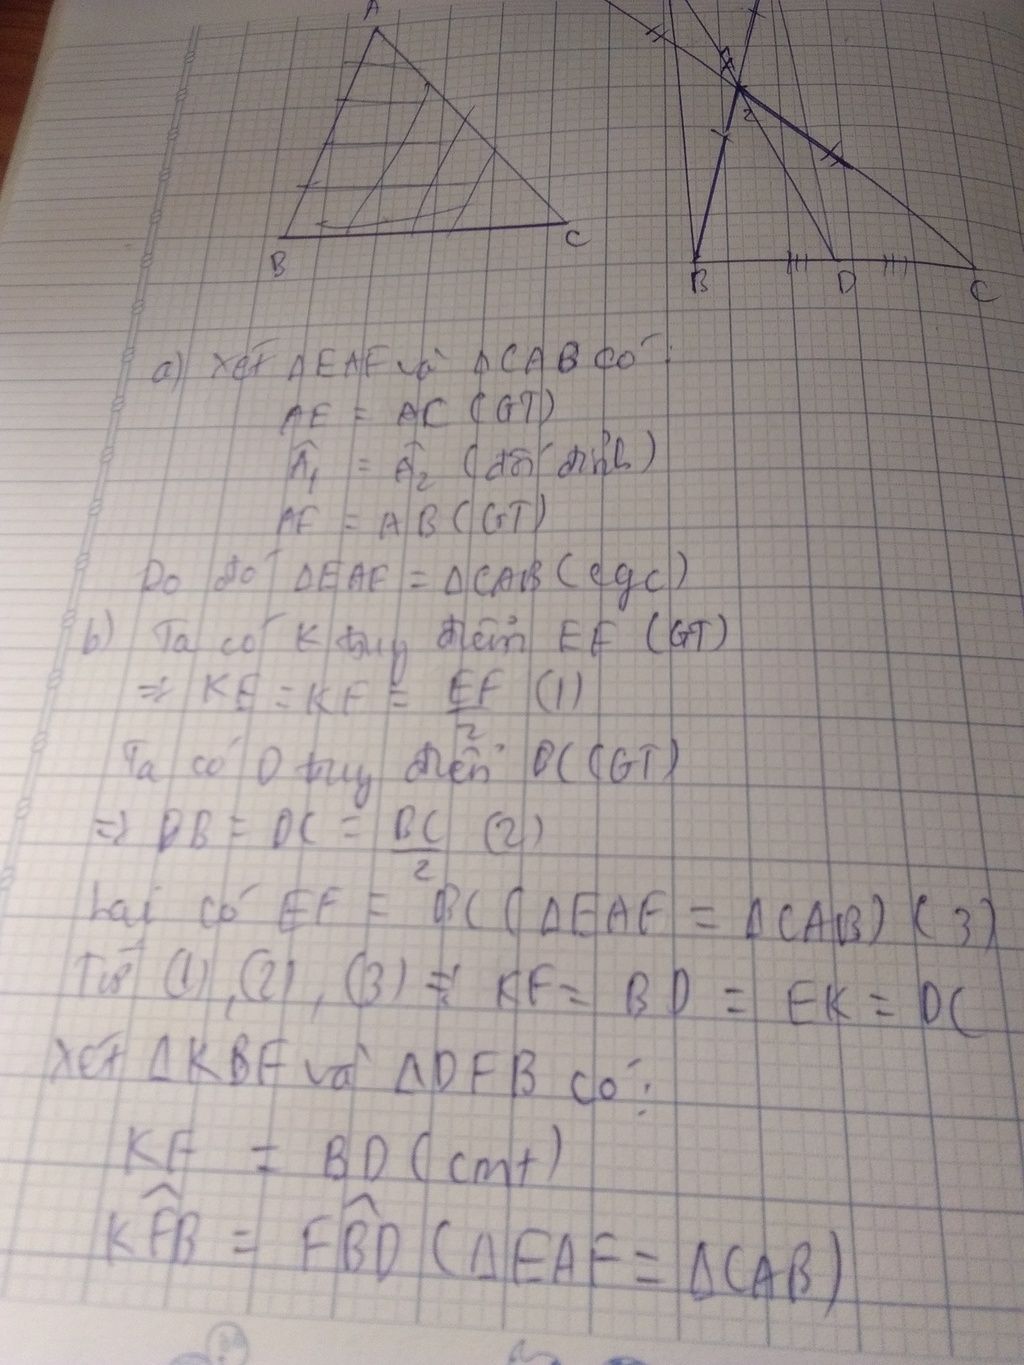 A
B
C
2
B
D
C
a) Xét ΔEAF và ΔCAB có:
AE = AC (GT)
Â₁ = Â₂ (đối đỉnh)
AF = AB (GT)
Do đó ΔEAF = ΔCAB (cgc)
b) Ta có K trung điểm EF (GT)
⇒ KE = KF = EF/2 (1)
Ta có D trung điểm BC (GT)
⇒ DB = DC = BC/2 (2)
Lại có EF = BC (ΔEAF = ΔCAB) (3)
Từ (1), (2), (3) ⇒ KF = BD = EK = DC
Xét ΔKBF và ΔDFB có:
KF = BD (cmt)
KF̂B = FB̂D (ΔEAF = ΔCAB)